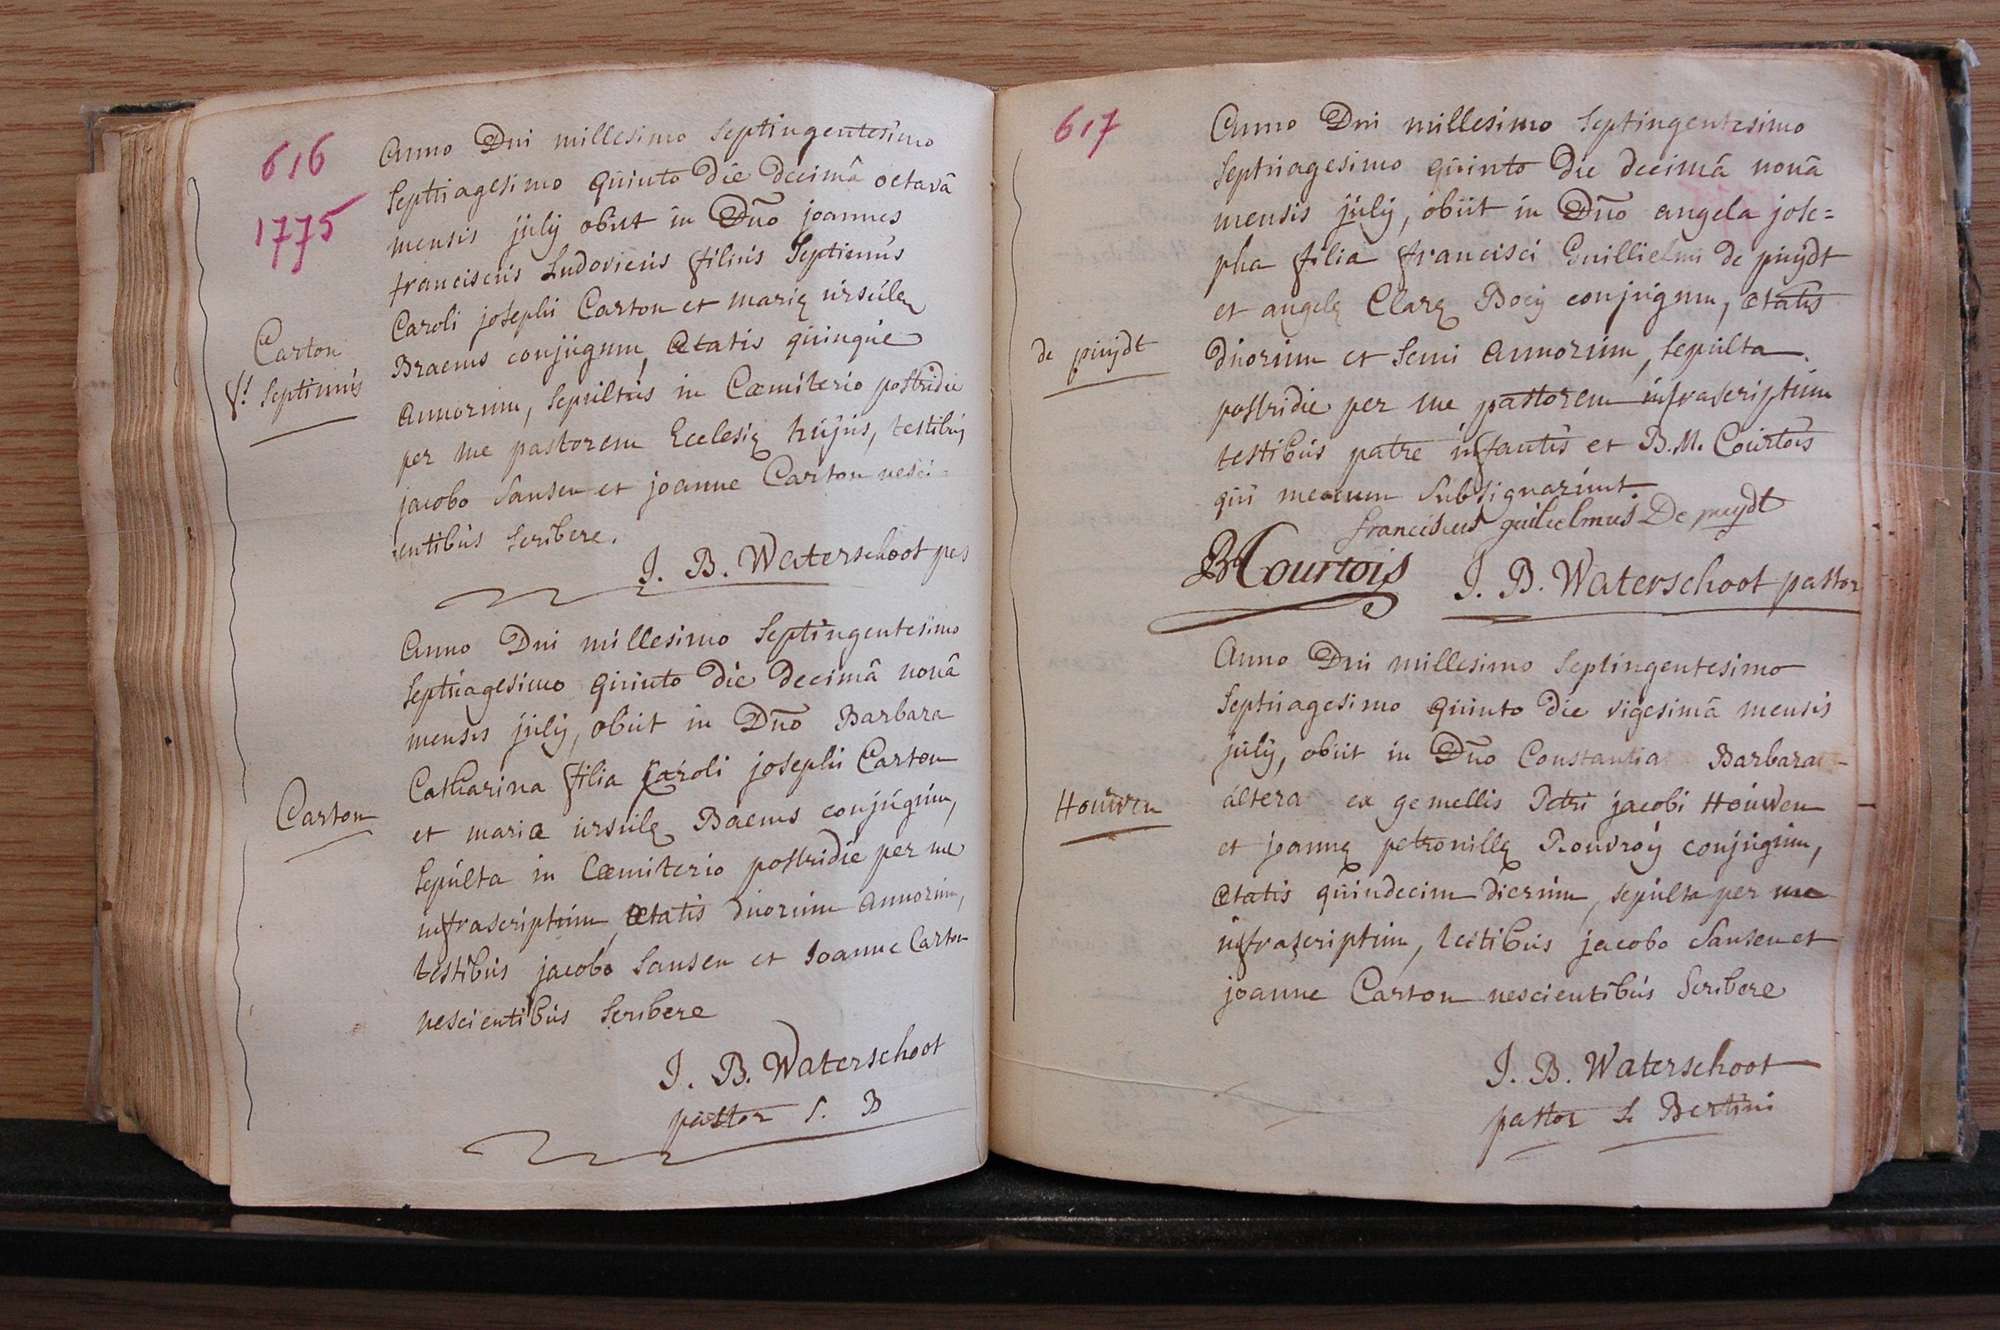 616
1775
Anno Dni millesimo septingentesimo
septuagesimo quinto die decimâ octavâ
mensis july obiit in Dño joannes
franciscus Ludovicus filius septimus
Caroli josephi Carton et marię ursulę
Braems conjugum, ætatis quinque
annorum, sepultus in Cœmiterio postridie
per me pastorem Ecclesię hujus, testibus
jacobo Sansen et joanne Carton nesci-
entibus scribere.
J. B. Waterschoot pas
Carton
fs. septimus
Anno Dni millesimo septingentesimo
septuagesimo quinto die decimâ nonâ
mensis july, obiit in Dño Barbara
Catharina filia Caroli josephi Carton
et maria ursulę Baems conjugum,
sepulta in Cœmiterio postridie per me
infrascriptum, ætatis duorum annorum,
testibus jacobo Sansen et Joanne Carton
nescientibus scribere
J. B. Waterschoot
pastor S. B
Carton
617
Anno Dni millesimo septingentesimo
septuagesimo quinto die decimâ nonâ
mensis july, obiit in Dño angela jose=
pha filia francisci Guillielmi de puydt
et angelę Clarę Boey conjugum, ætatis
duorum et semi annorum, sepulta
postridie per me pastorem infrascriptum
testibus patre infantis et B.M. Courtois
qui mecum subsignarunt
franciscus guilielmus De puydt
BM Courtois J. B. Waterschoot pastor
de puydt
Anno Dni millesimo septingentesimo
septuagesimo quinto die vigesimâ mensis
july, obiit in Dño Constantia Barbara
altera ex gemellis Petri jacobi Houwen
et joannę petronillę Rouvroy conjugum,
ætatis quindecim dierum, sepulta per me
infrascriptum, testibus jacobo Sansen et
joanne Carton nescientibus scribere
J. B. Waterschoot
pastor S. Bertini
Houwen